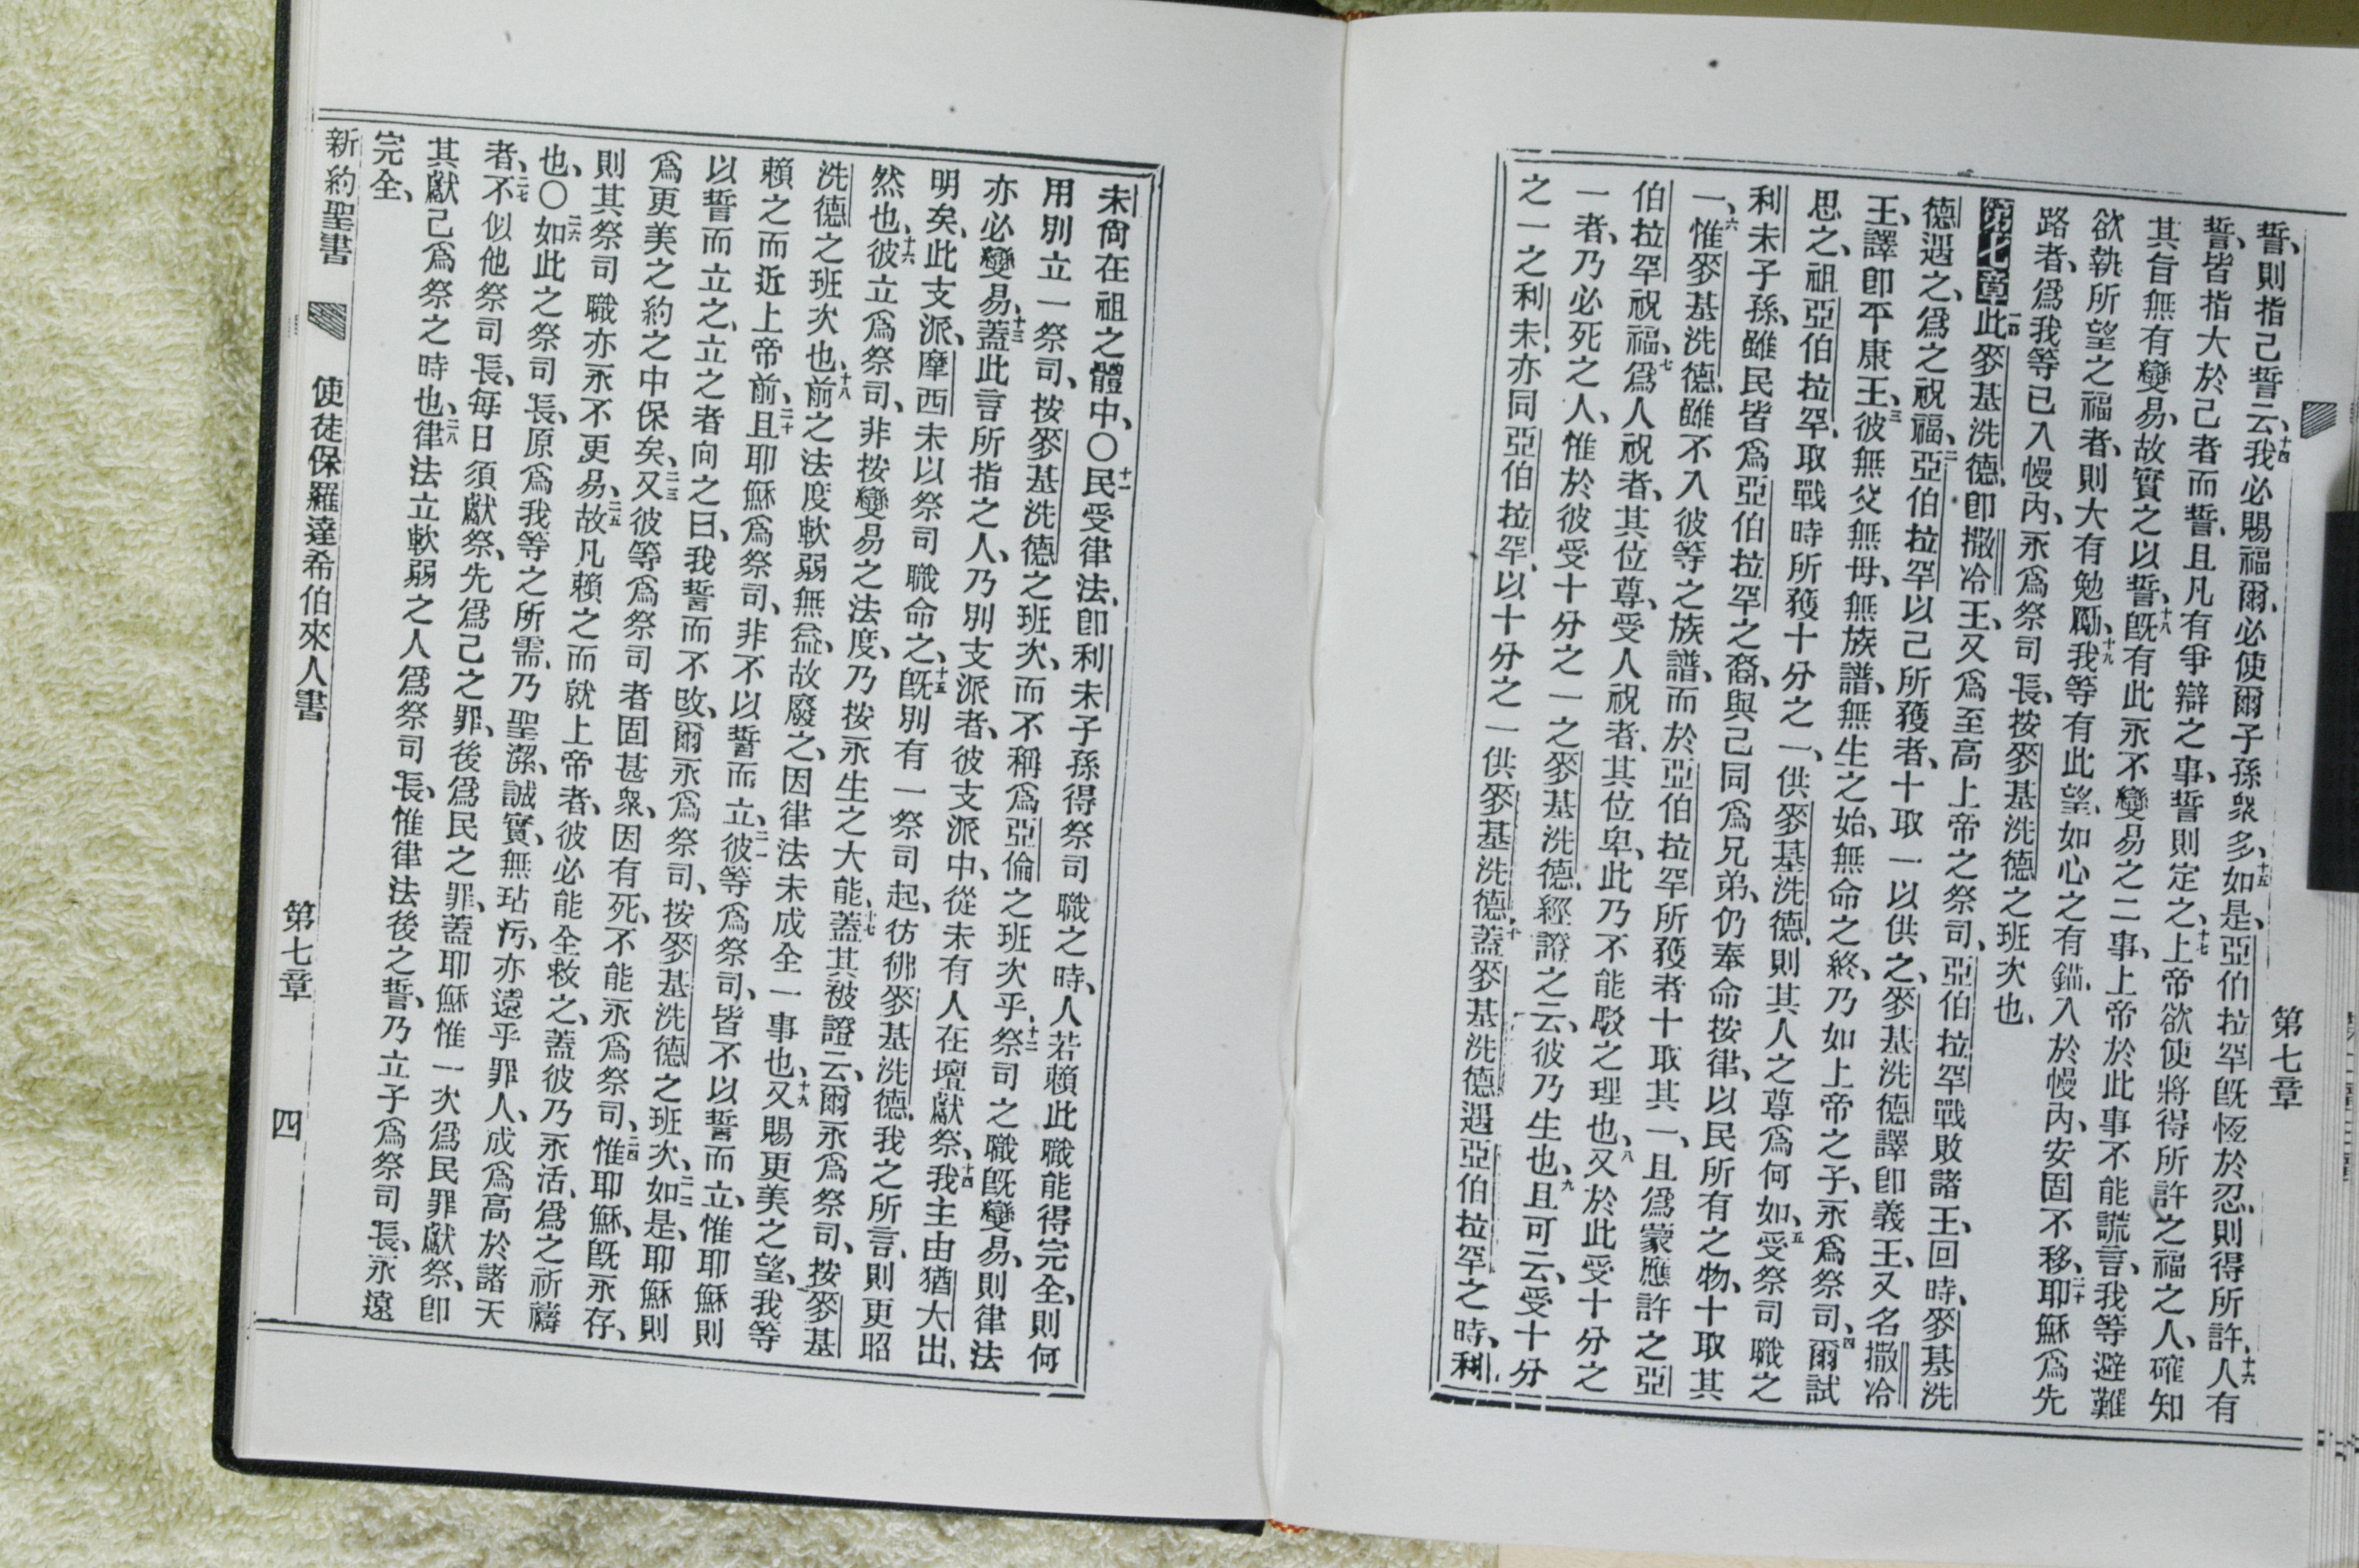 誓、則指己誓云、十四我必賜福爾、必使爾子孫衆多、十五如是、亞伯拉罕旣恆於忍、則得所許、十六人有
誓、皆指大於己者而誓、且凡有爭辯之事、誓則定之、十七上帝欲使將得所許之福之人、確知
其旨無有變易、故實之以誓、十八旣有此永不變易之二事、上帝於此事不能謊言、我等避難
欲執所望之福者、則大有勉勵、十九我等有此望、如心之有錨、入於幔內、安固不移、二十耶穌爲先
路者、爲我等已入幔內、永爲祭司長、按麥基洗德之班次也、
第七章 一此麥基洗德、卽撒冷王、又爲至高上帝之祭司、亞伯拉罕戰敗諸王、回時、麥基洗
德遇之、爲之祝福、二亞伯拉罕以己所獲者、十取一以供之、麥基洗德譯卽義王、又名撒冷
王、譯卽平康王、三彼無父無母、無族譜、無生之始、無命之終、乃如上帝之子、永爲祭司、四爾試
思之、祖亞伯拉罕、取戰時所獲十分之一、供麥基洗德、則其人之尊爲何如、五受祭司職之
利未子孫、雖民皆爲亞伯拉罕之裔、與己同爲兄弟、仍奉命按律、以民所有之物、十取其
一、六惟麥基洗德、雖不入彼等之族譜、而於亞伯拉罕所獲者十取其一、且爲蒙應許之亞
伯拉罕祝福、七爲人祝者、其位尊、受人祝者、其位卑、此乃不能駁之理也、八又於此受十分之
一者、乃必死之人、惟於彼受十分之一之麥基洗德、經證之云、彼乃生也、九且可云、受十分
之一之利未、亦同亞伯拉罕、以十分之一供麥基洗德、十蓋麥基洗德遇亞伯拉罕之時、利
第七章
未尙在祖之體中、〇十一民受律法、卽利未子孫得祭司職之時、人若賴此職能得完全、則何
用別立一祭司、按麥基洗德之班次、而不稱爲亞倫之班次乎、十二祭司之職旣變易、則律法
亦必變易、十三蓋此言所指之人、乃別支派者、彼支派中、從未有人在壇獻祭、十四我主由猶大出、
明矣、此支派、摩西未以祭司職命之、十五旣別有一祭司起、彷彿麥基洗德、我之所言、則更昭
然也、十六彼立爲祭司、非按變易之法度、乃按永生之大能、十七蓋其被證云、爾永爲祭司、按麥基
洗德之班次也、十八前之法度軟弱無益、故廢之、因律法未成全一事也、十九又賜更美之望、我等
賴之而近上帝前、二十且耶穌爲祭司、非不以誓而立、二一彼等爲祭司、皆不以誓而立、惟耶穌則
以誓而立之、立之者向之曰、我誓而不改、爾永爲祭司、按麥基洗德之班次、二二如是、耶穌則
爲更美之約之中保矣、二三又彼等爲祭司者固甚衆、因有死、不能永爲祭司、二四惟耶穌、旣永存、
則其祭司職亦永不更易、二五故凡賴之而就上帝者、彼必能全救之、蓋彼乃永活、爲之祈禱
也、〇二六如此之祭司長、原爲我等之所需、乃聖潔、誠實、無玷污、亦遠乎罪人、成爲高於諸天
者、二七不似他祭司長、每日須獻祭、先爲己之罪、後爲民之罪、蓋耶穌惟一次爲民罪獻祭、卽
其獻己爲祭之時也、二八律法立軟弱之人爲祭司長、惟律法後之誓、乃立子爲祭司長、永遠
完全、
新約聖書 使徒保羅達希伯來人書 第七章 四